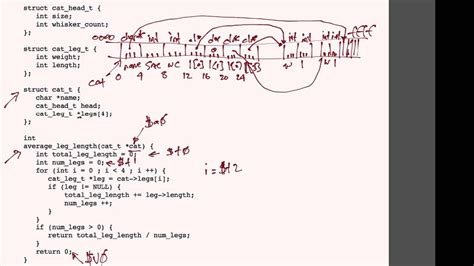 struct cat_head_t {
int size;
int whisker_count;
};
struct cat_leg_t {
int weight;
int length;
};
struct cat_t {
char *name;
cat_head_t head;
cat_leg_t *legs[4];
};
int
average_leg_length(cat_t *cat) {
int total_leg_length = 0;
int num_legs = 0;
for (int i = 0 ; i < 4 ; i ++) {
cat_leg_t *leg = cat->legs[i];
if (leg != NULL) {
total_leg_length += leg->length;
num_legs ++;
}
}
if (num_legs > 0) {
return total_leg_length / num_legs;
}
return 0;
}
0000 char* int int
name size wc l[0] l[1] l[2] l[3] w l w l
cat 0 4 8 12 16 20 24
$a0
$t0
$t1
i = $t2
$v0